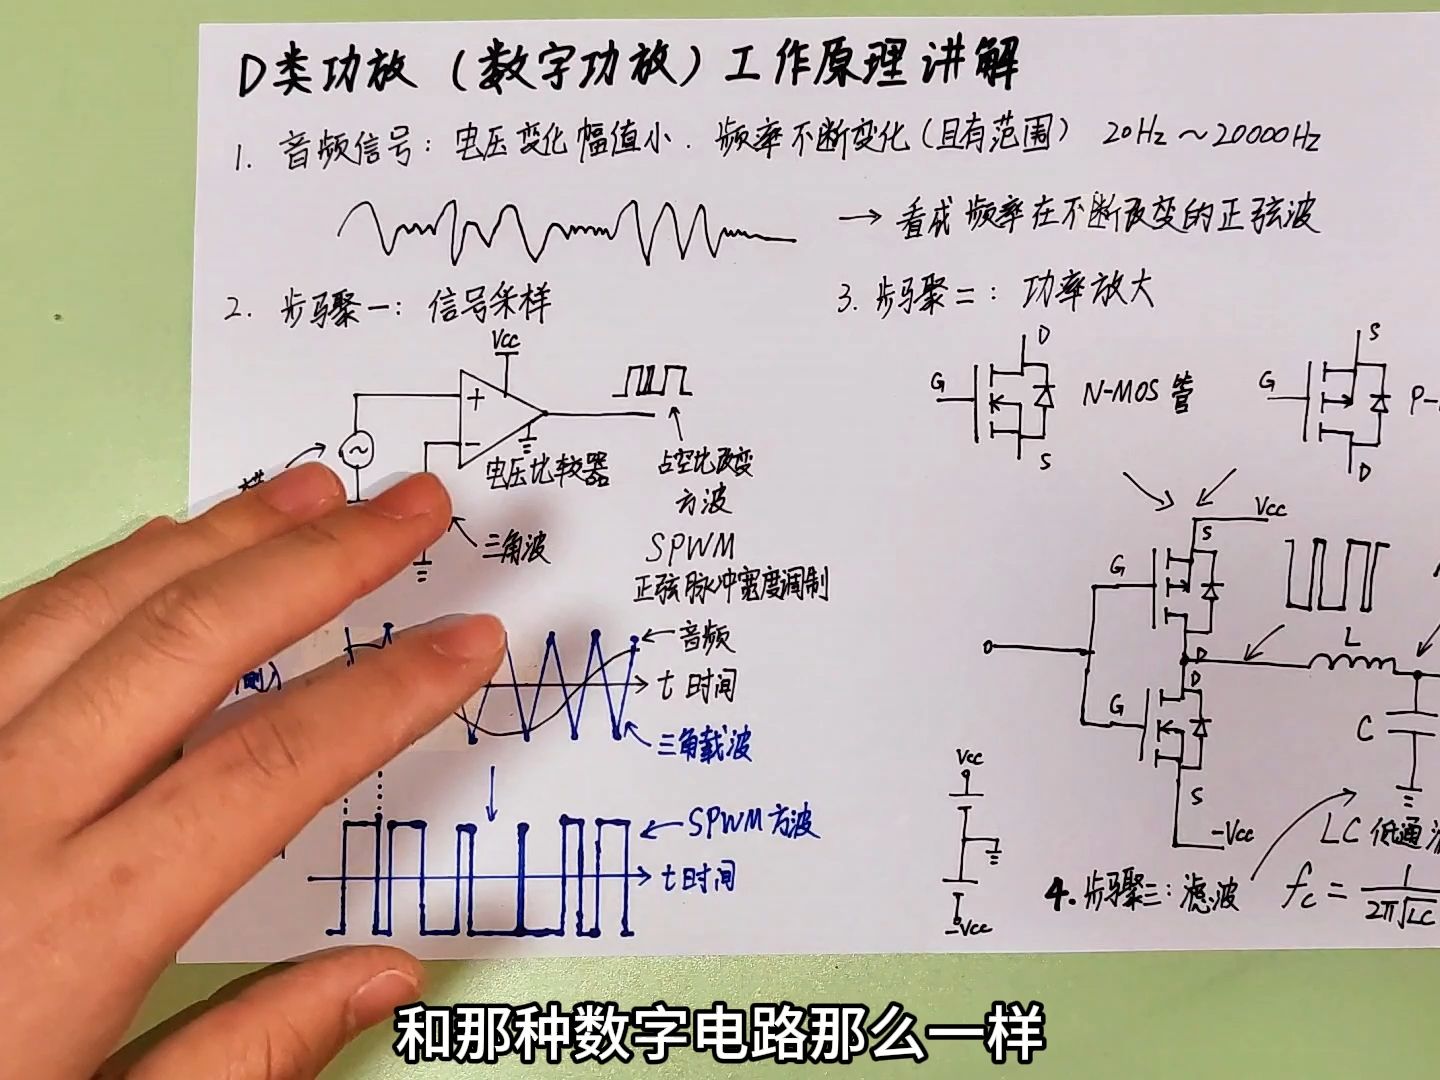 D类功放（数字功放）工作原理讲解
1. 音频信号：电压变化幅值小．频率不断变化（且有范围） 20Hz～20000Hz
→ 看成频率在不断改变的正弦波
2. 步骤一：信号采样
Vcc
+
−
~
电压比较器
三角波
占空比改变
方波
SPWM
正弦脉冲宽度调制
音频
t 时间
三角载波
SPWM 方波
t 时间
3. 步骤二：功率放大
G
D
S
N-MOS 管
G
S
D
P-
Vcc
S
G
D
D
G
S
-Vcc
L
C
Vcc
-Vcc
LC 低通
4. 步骤三：滤波
fc = 1/2π√LC
和那种数字电路那么一样